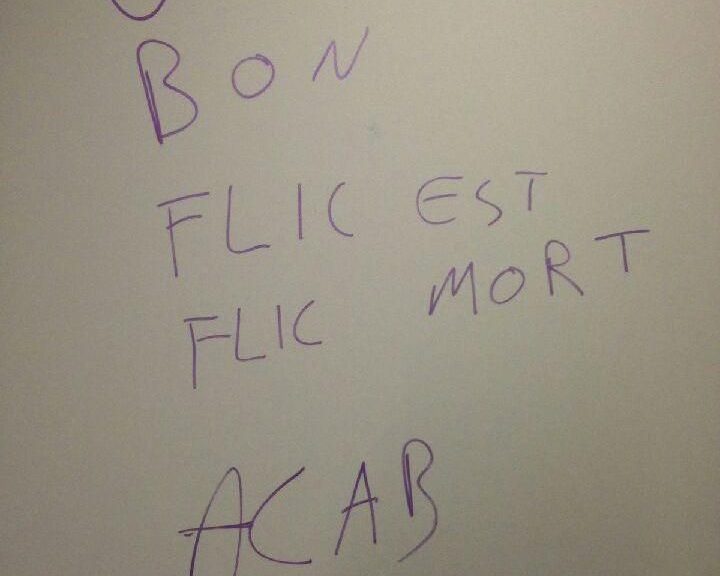 BON
FLIC EST
FLIC MORT
ACAB